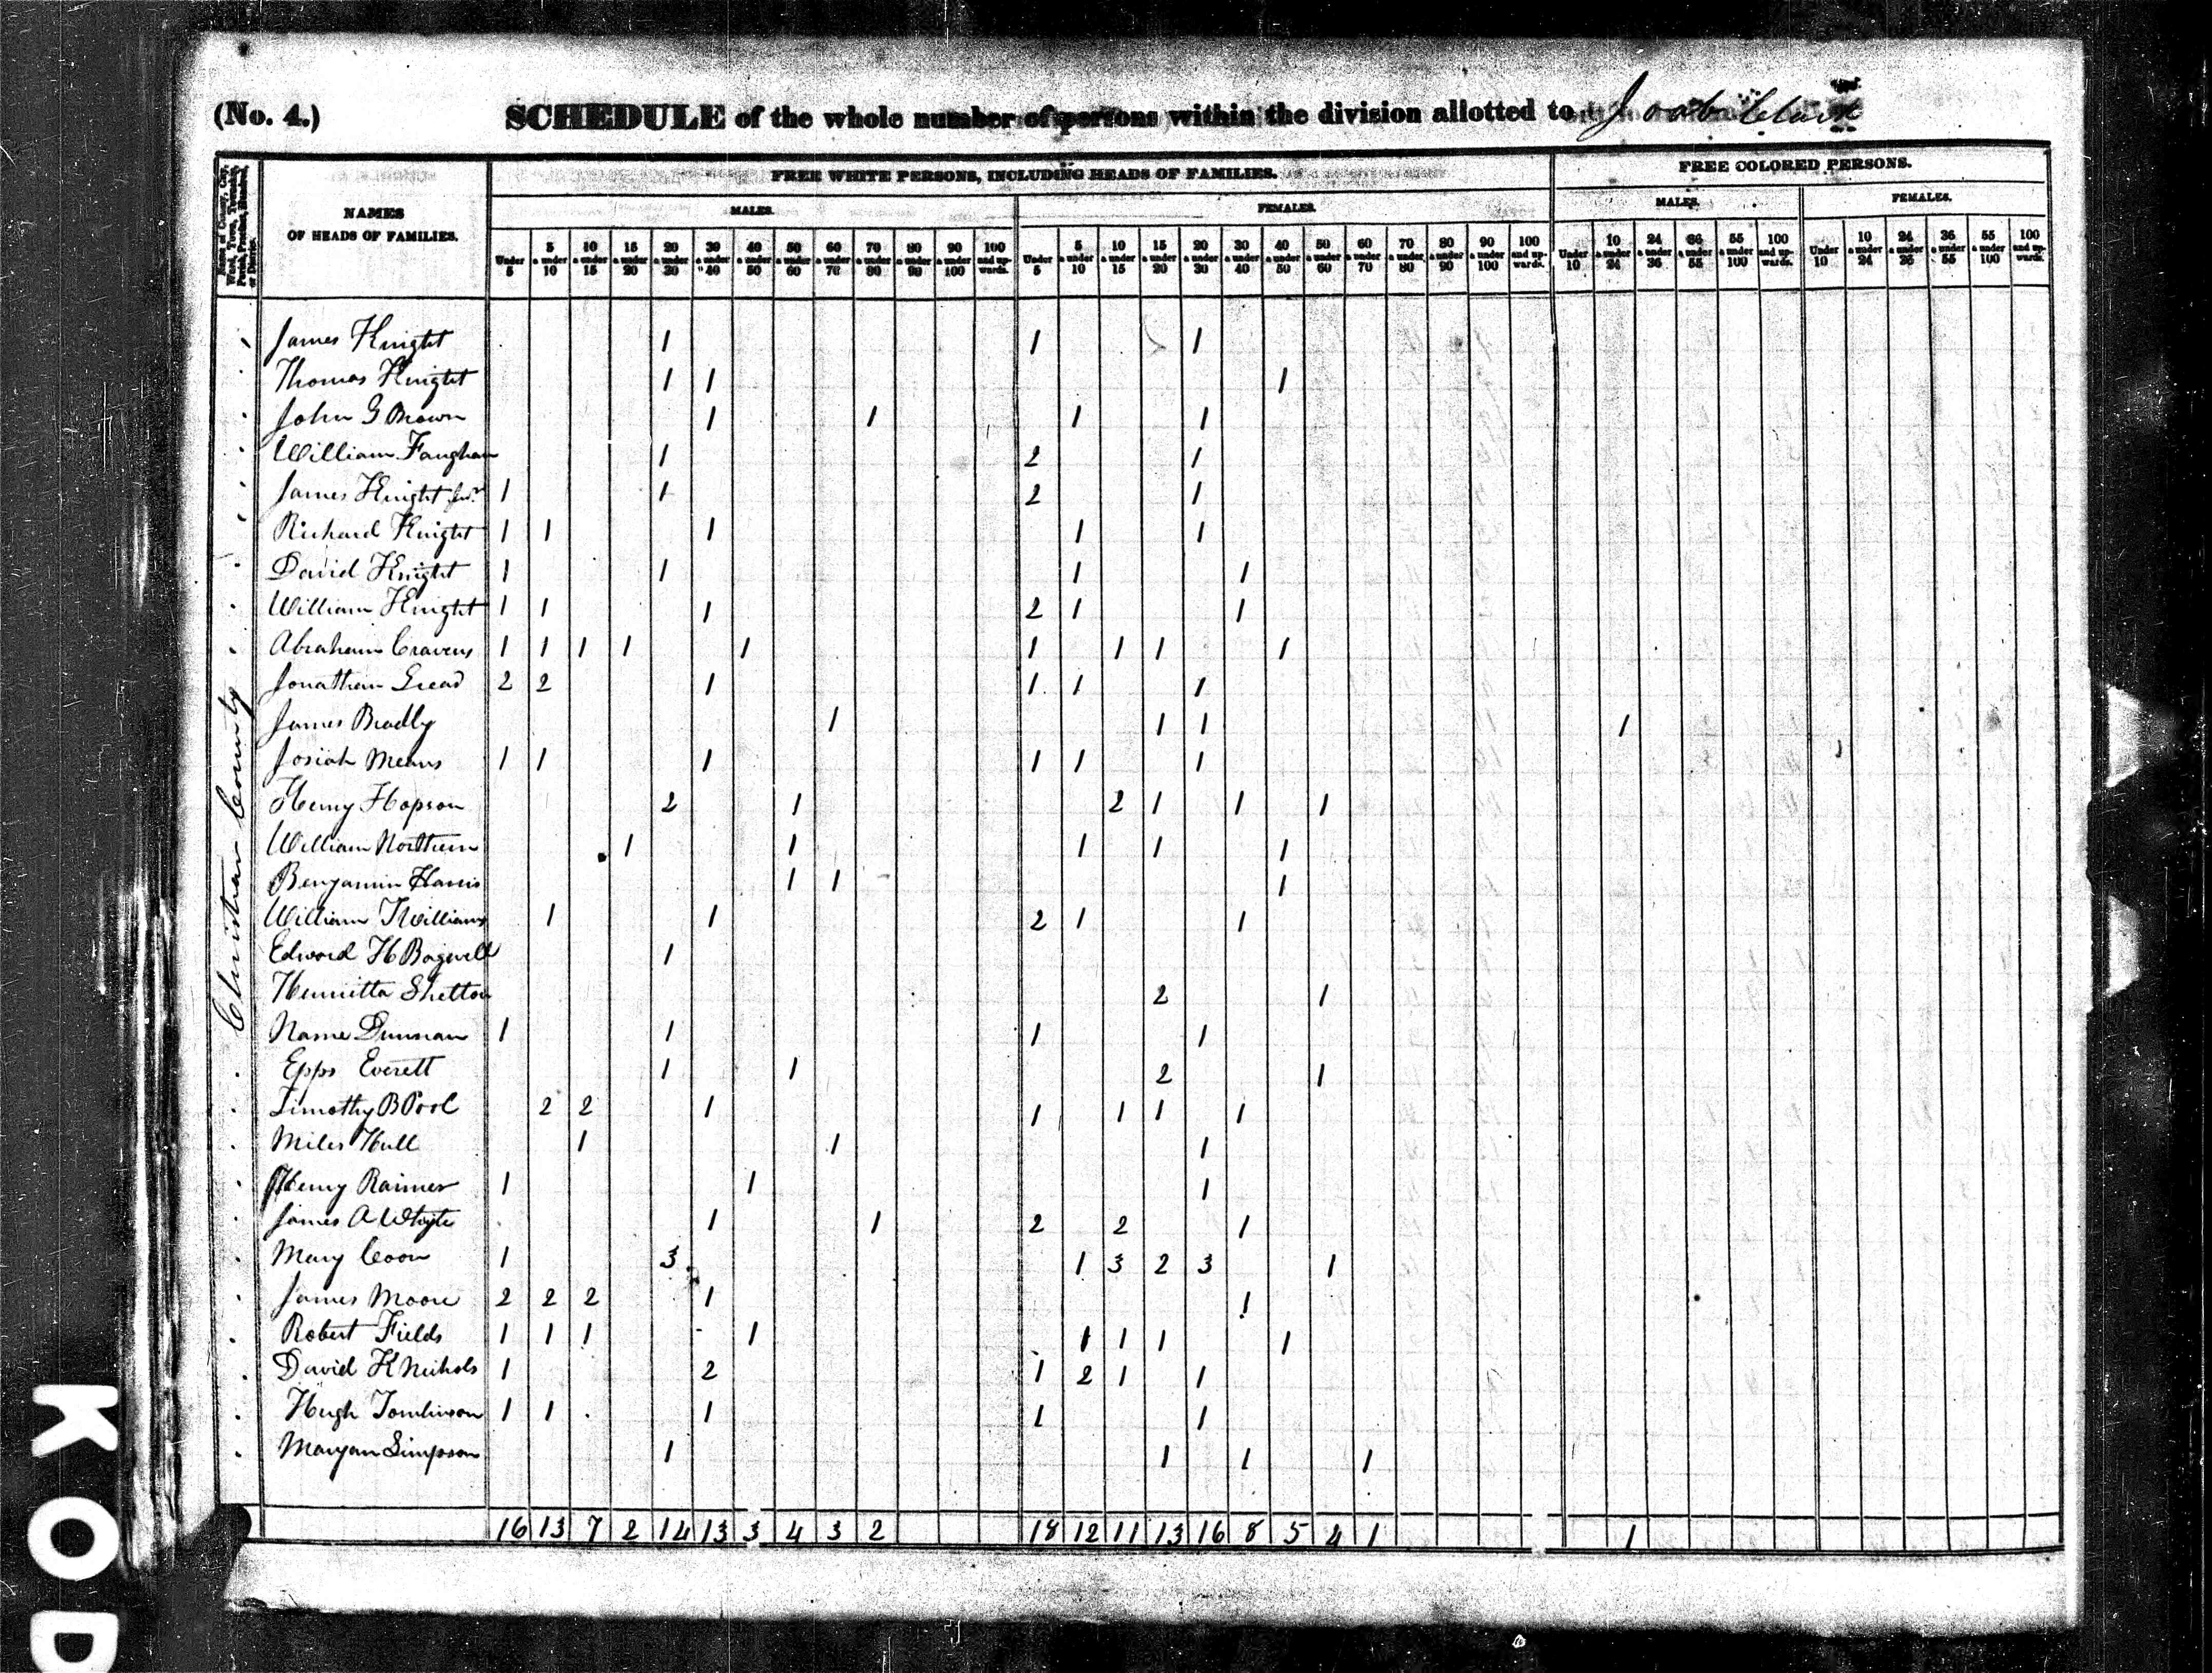 (No. 4.)
SCHEDULE of the whole number of persons within the division allotted to Joab Clark
Name of County, City, Ward, Town, Township, Parish, Precinct, Hundred, or District.
NAMES
OF HEADS OF FAMILIES.
FREE WHITE PERSONS, INCLUDING HEADS OF FAMILIES.
FREE COLORED PERSONS.
MALES.
FEMALES.
MALES.
FEMALES.
Under 5 | 5 & under 10 | 10 & under 15 | 15 & under 20 | 20 & under 30 | 30 & under 40 | 40 & under 50 | 50 & under 60 | 60 & under 70 | 70 & under 80 | 80 & under 90 | 90 & under 100 | 100 and upwards. | Under 5 | 5 & under 10 | 10 & under 15 | 15 & under 20 | 20 & under 30 | 30 & under 40 | 40 & under 50 | 50 & under 60 | 60 & under 70 | 70 & under 80 | 80 & under 90 | 90 & under 100 | 100 and upwards. | Under 10 | 10 & under 24 | 24 & under 36 | 36 & under 55 | 55 & under 100 | 100 and upwards. | Under 10 | 10 & under 24 | 24 & under 36 | 36 & under 55 | 55 & under 100 | 100 and upwards.
Christian County
James Knight 1 1 1
Thomas Knight 1 1 1
John G Brown 1 1 1 1
William Faughan 1 2 1
James Knight Jur 1 1 2 1
Richard Knight 1 1 1 1 1
David Knight 1 1 1 1
William Knight 1 1 1 2 1 1
Abraham Cravens 1 1 1 1 1 1 1 1 1
Jonathan 2 2 1 1 1 1
James Bradly 1 1 1 1
Josiah Means 1 1 1 1 1 1
Henry Hopson 2 1 2 1 1 1
William Northern 1 1 1 1 1
Benjamin Harris 1 1 1
William T Williams 1 1 2 1 1
Edward H Bagwell 1
Henrietta Shelton 2 1
Dunnan 1 1 1 1
Epps Everett 1 1 2 1
Timothy B Pool 2 2 1 1 1 1 1
Miles Hull 1 1 1
Henry Raimer 1 1 1
James A Whyte 1 1 2 2 1
Mary Coon 1 3 1 3 2 3 1
James Moore 2 2 2 1 1
Robert Fields 1 1 1 1 1 1 1 1
David K Nichols 1 2 1 2 1 1
Hugh Tomlinson 1 1 1 1 1
Maryan Simpson 1 1 1 1
16 13 7 2 14 13 3 4 3 2 18 12 11 13 16 8 5 4 1 1
KOD